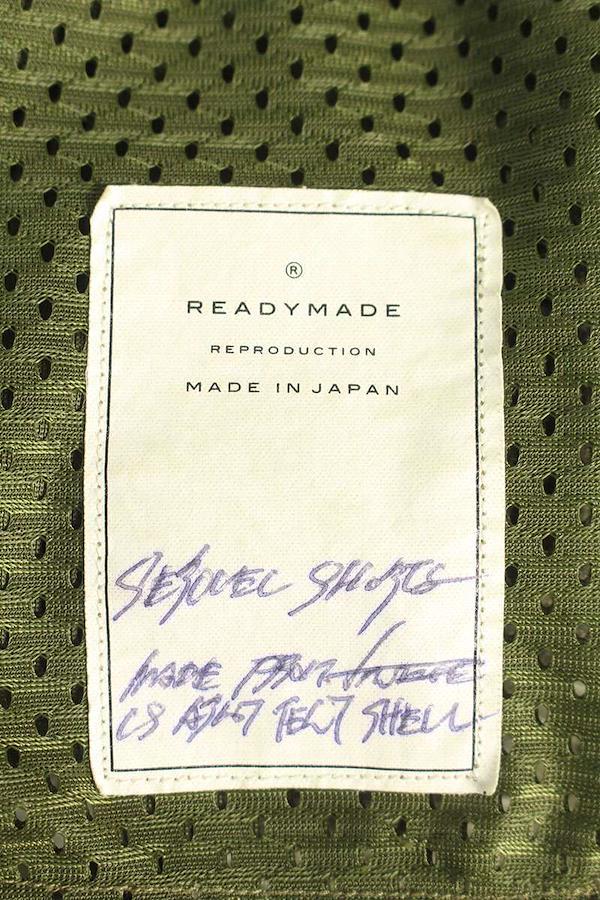 ®
READYMADE
REPRODUCTION
MADE IN JAPAN
SHORTS
MADE FROM
US ARMY TENT SHELL